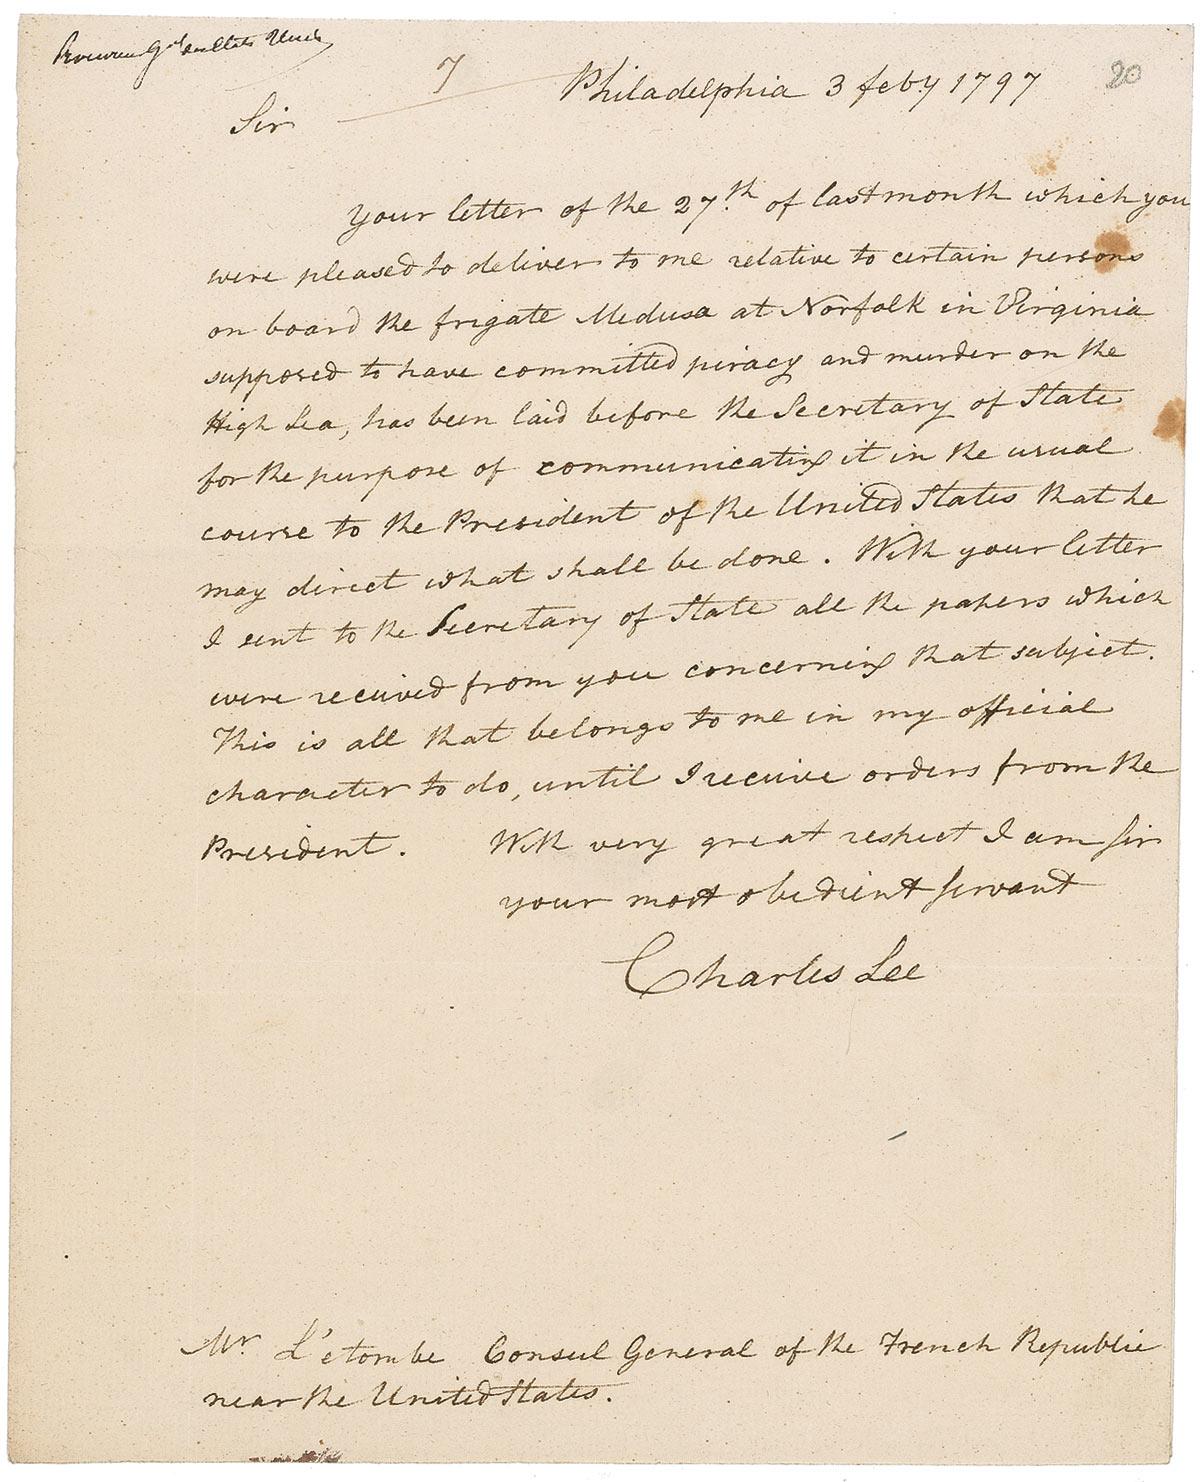 Procureur Gal des Etats Unis
7
Philadelphia 3 feby 1797
20
Sir
Your letter of the 27th. of last month which you
were pleased to deliver to me relative to certain persons
on board the frigate Medusa at Norfolk in Virginia
supposed to have committed piracy and murder on the
High Sea, has been laid before the Secretary of State
for the purpose of communicating it in the usual
course to the President of the United States that he
may direct what shall be done. With your letter
I sent to the Secretary of State all the papers which
were received from you concerning that subject.
This is all that belongs to me in my official
character to do, until I receive orders from the
President. With very great respect I am Sir
your most obedient servant
Charles Lee
Mr L'etombe Consul General of the French Republic
near the United States.